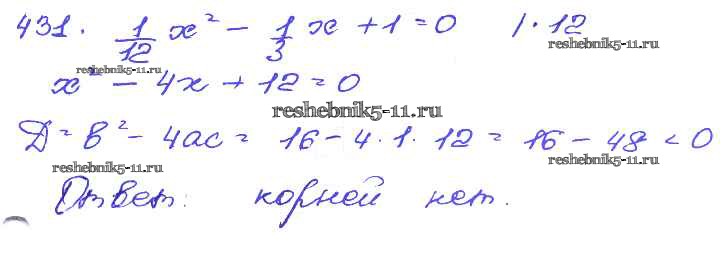 431. 1/12 x² - 1/3 x + 1 = 0 | · 12
reshebnik5-11.ru
reshebnik5-11.ru
x² - 4x + 12 = 0
reshebnik5-11.ru
D = b² - 4ac = 16 - 4 · 1 · 12 = 16 - 48 < 0
reshebnik5-11.ru
reshebnik5-11.ru
Ответ: корней нет.